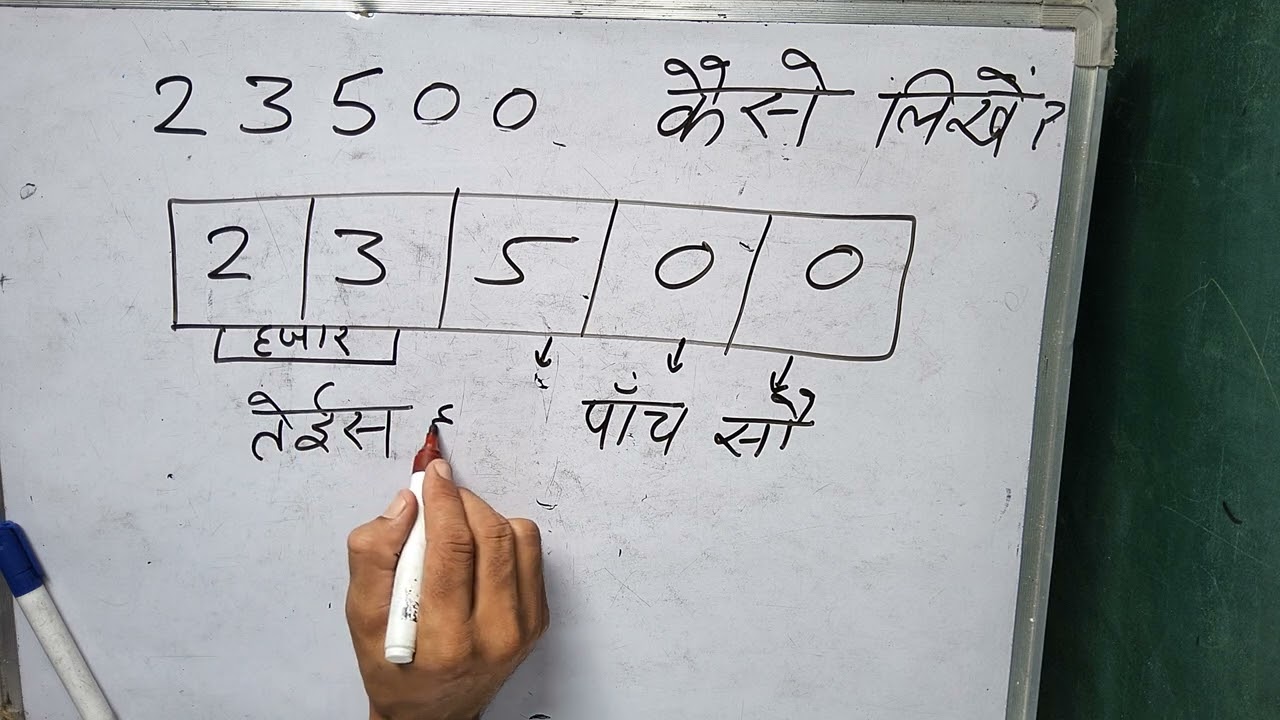 23500 कैसे लिखें?
2 3 5 0 0
हजार
तेईस ह पाँच सौ